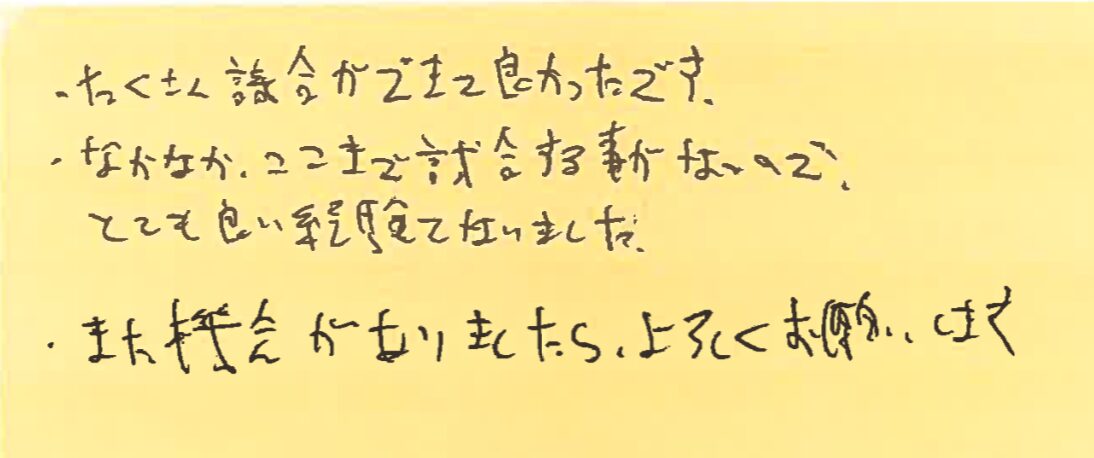 ・たくさん試合ができて良かったです。
・なかなか、ここまで試合する事がないので、
とても良い経験でなりました。
・また機会がありましたら、よろしくお願いします